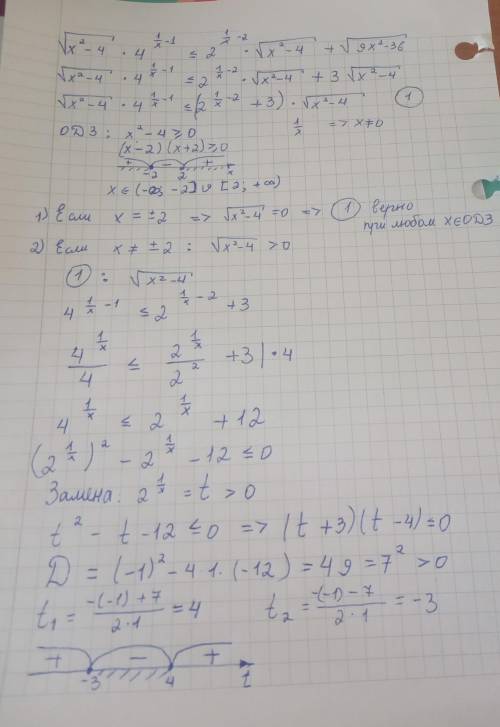 √(x²-4) · 4^(1/x -1) ≤ 2^(1/x -2) · √(x²-4) + √(9x²-36)
√(x²-4) · 4^(1/x -1) ≤ 2^(1/x -2) · √(x²-4) + 3 √(x²-4)
√(x²-4) · 4^(1/x -1) ≤ (2^(1/x -2) + 3) · √(x²-4) ①
ОДЗ: x²-4 ≥ 0 1/x => x≠0
(x-2)(x+2) ≥ 0
+ - +
-2 2 x
x ∈ (-∞; -2] ∪ [2; +∞)
1) Если x = ±2 => √(x²-4) = 0 => ① верно
при любом x∈ОДЗ
2) Если x ≠ ±2 : √(x²-4) > 0
① : √(x²-4)
4^(1/x -1) ≤ 2^(1/x -2) + 3
4^(1/x)/4 ≤ 2^(1/x)/2² + 3 | · 4
4^(1/x) ≤ 2^(1/x) + 12
(2^(1/x))² - 2^(1/x) - 12 ≤ 0
Замена: 2^(1/x) = t > 0
t² - t - 12 ≤ 0 => (t + 3)(t - 4) ≤ 0
D = (-1)² - 4·1·(-12) = 49 = 7² > 0
t₁ = (-(-1)+7)/(2·1) = 4 t₂ = (-(-1)-7)/(2·1) = -3
+ - +
-3 4 t